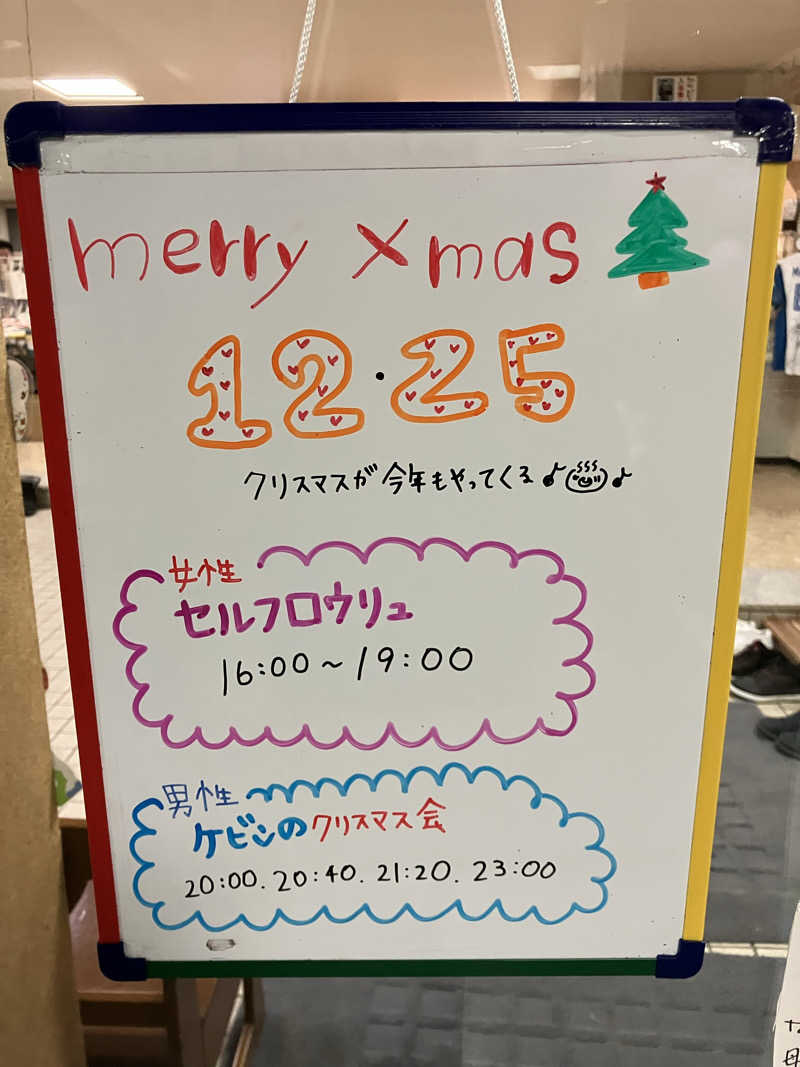 merry Xmas
12・25
クリスマスが今年もやってくる♪♨♪
女性
セルフロウリュ
16:00~19:00
男性
ケビンのクリスマス会
20:00. 20:40. 21:20. 23:00